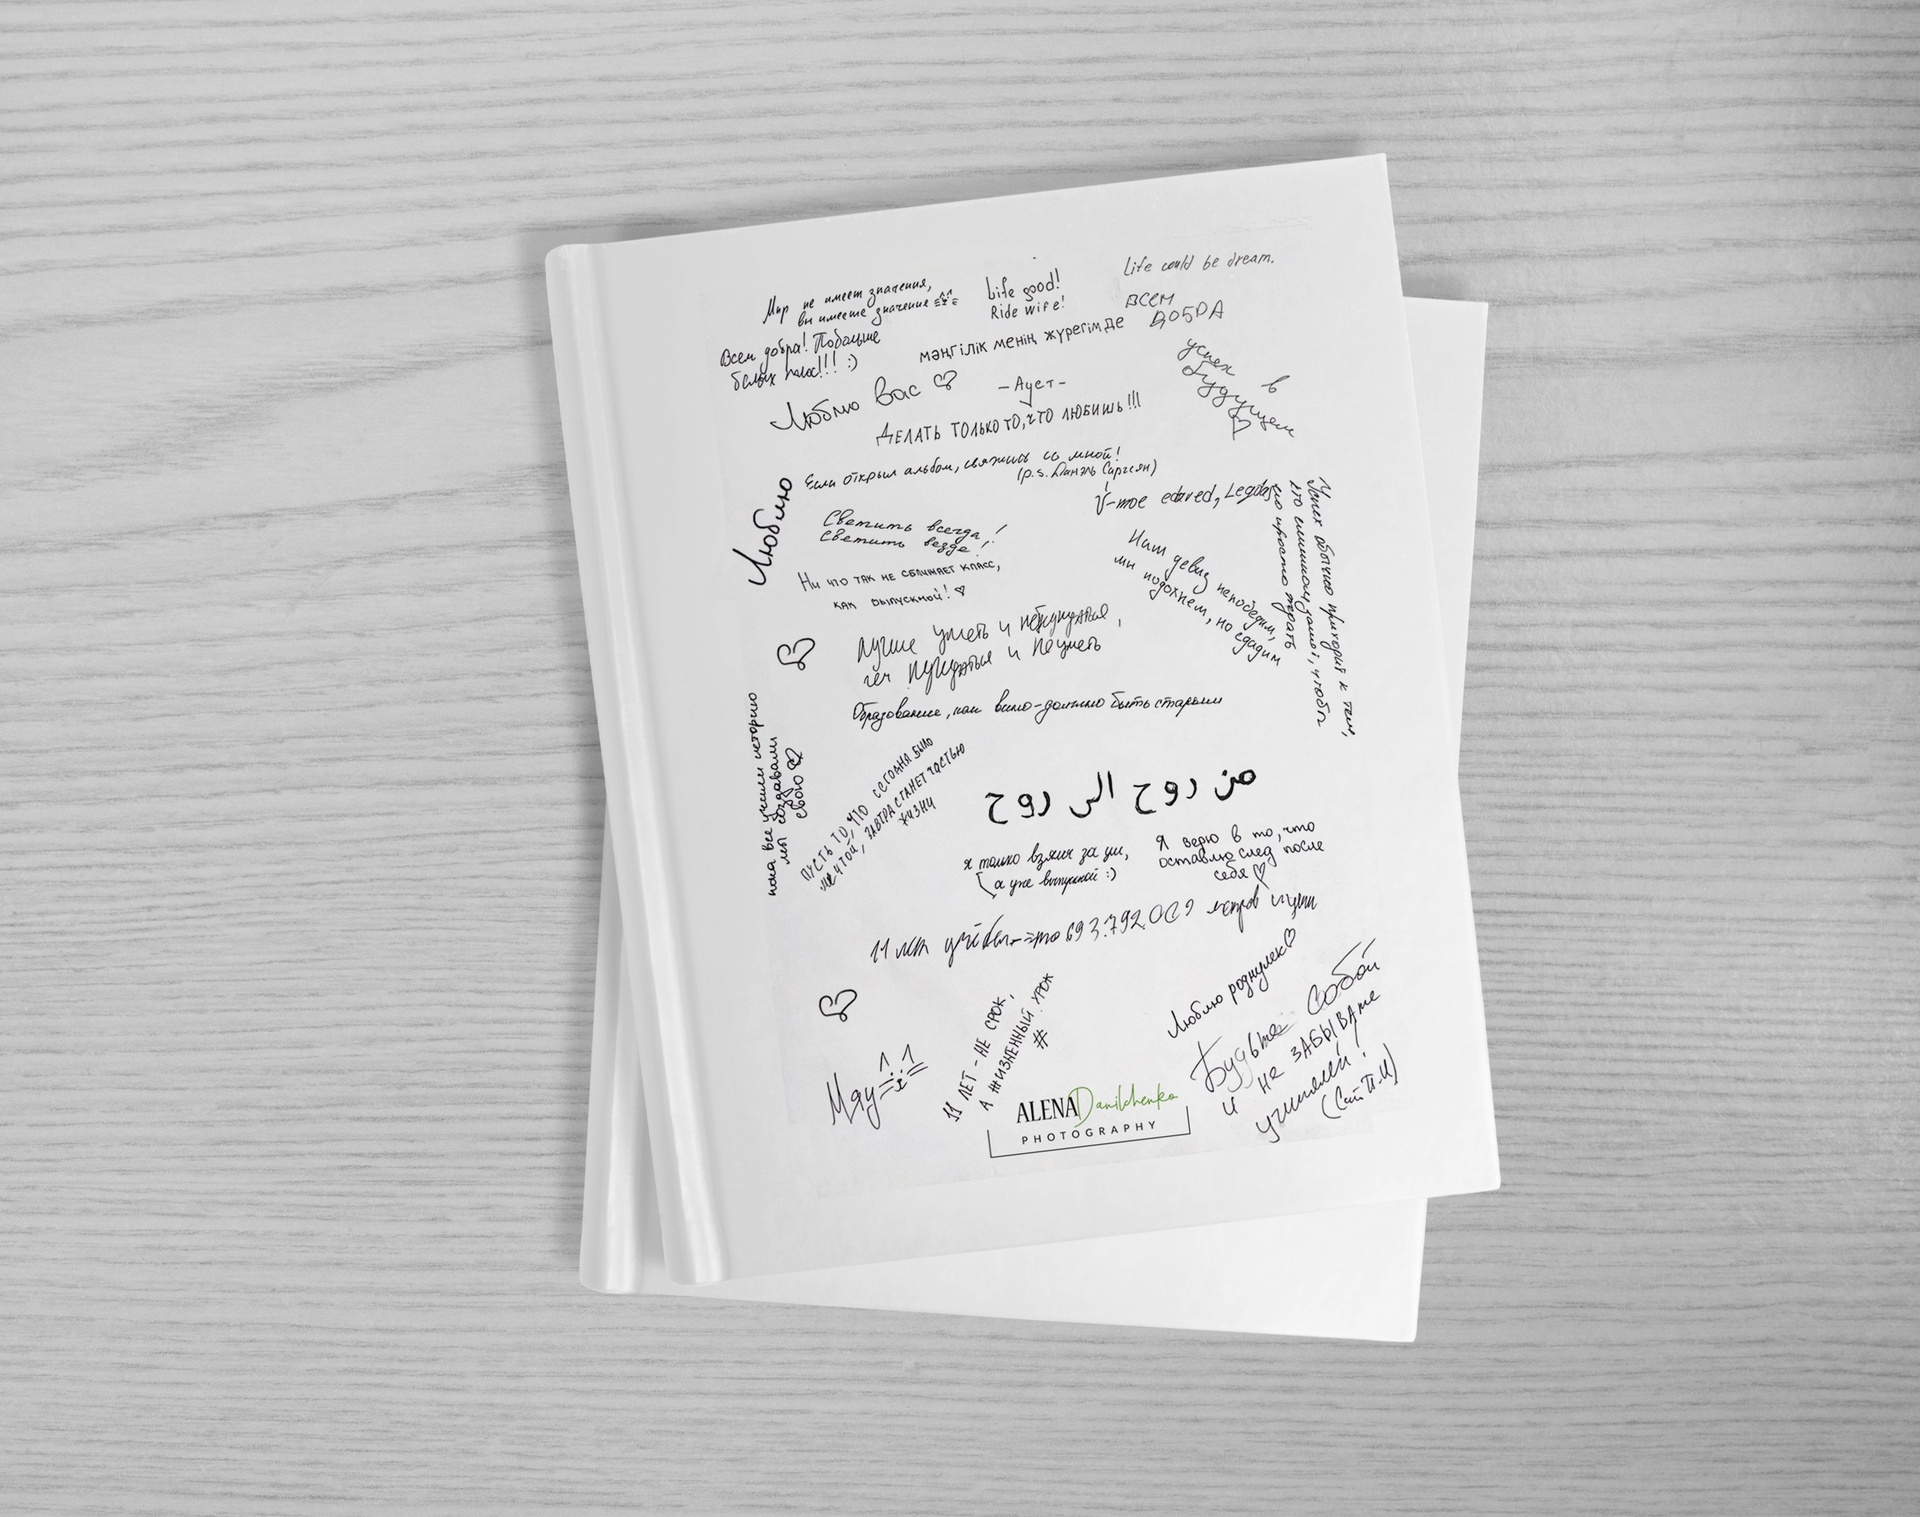 Мир не имеет значения,
вы имеете значение
Life good!
Ride wife!
Life could be dream.
Всем добра! Побольше
белых полос!!! :)
мәңгілік менің жүрегімде
ВСЕМ
ДОБРА
Люблю Вас
-Ауст-
ДЕЛАТЬ ТОЛЬКО ТО, ЧТО ЛЮБИШЬ!!!
успех в
будущем
Если открыл альбом, свяжись со мной!
(p.s. Даниэль Саргсян)
Люблю
V-moe edaved,
Светить всегда!
Светить везде!
Ни что так не сближает класс,
как выпускной!
Наш девиз непобедим,
мы подохнем, но сдадим
Успех обычно приходит к тем,
кто слишком занят, чтобы
его просто ждать
Лучше уметь и не нуждаться,
чем нуждаться и не уметь
Образование, как вино-должно быть старым
пока все учили историю
мы создавали
свою
ПУСТЬ ТО, ЧТО СЕГОДНЯ БЫЛО
МЕЧТОЙ, ЗАВТРА СТАНЕТ ЧАСТЬЮ
ЖИЗНИ
من روح الى روح
я только взялся за ум,
а уже выпускной :)
Я верю в то, что
оставлю след после
себя
11 лет учёбы-это 693.792.000 метров
Люблю роднулек
Будьте собой
и не ЗАБЫВАйте
учителей!
Мяу
11 ЛЕТ - НЕ СРОК,
А ЖИЗНЕННЫЙ УРОК
#
ALENA Danilchenko
PHOTOGRAPHY